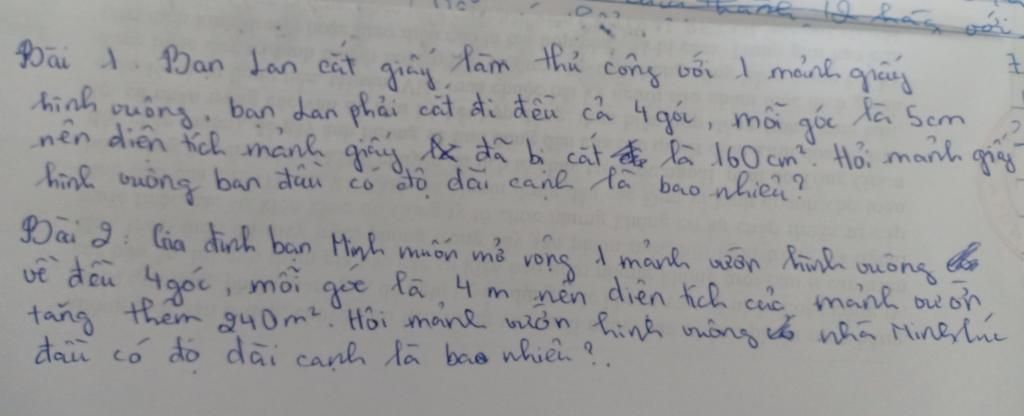 thành 12 hàng với
Bài 1. Bạn Lan cắt giấy làm thủ công với 1 mảnh giấy
hình vuông, bạn Lan phải cắt đi đều cả 4 góc, mỗi góc là 5cm
nên diện tích mảnh giấy đã bị cắt là 160cm². Hỏi mảnh giấy
hình vuông ban đầu có độ dài cạnh là bao nhiêu?
Bài 2: Gia đình bạn Minh muốn mở rộng 1 mảnh vườn hình vuông
về đều 4 góc, mỗi góc là 4 m nên diện tích của mảnh vườn
tăng thêm 240m². Hỏi mảnh vườn hình vuông nhà Minh lúc
đầu có độ dài cạnh là bao nhiêu?.